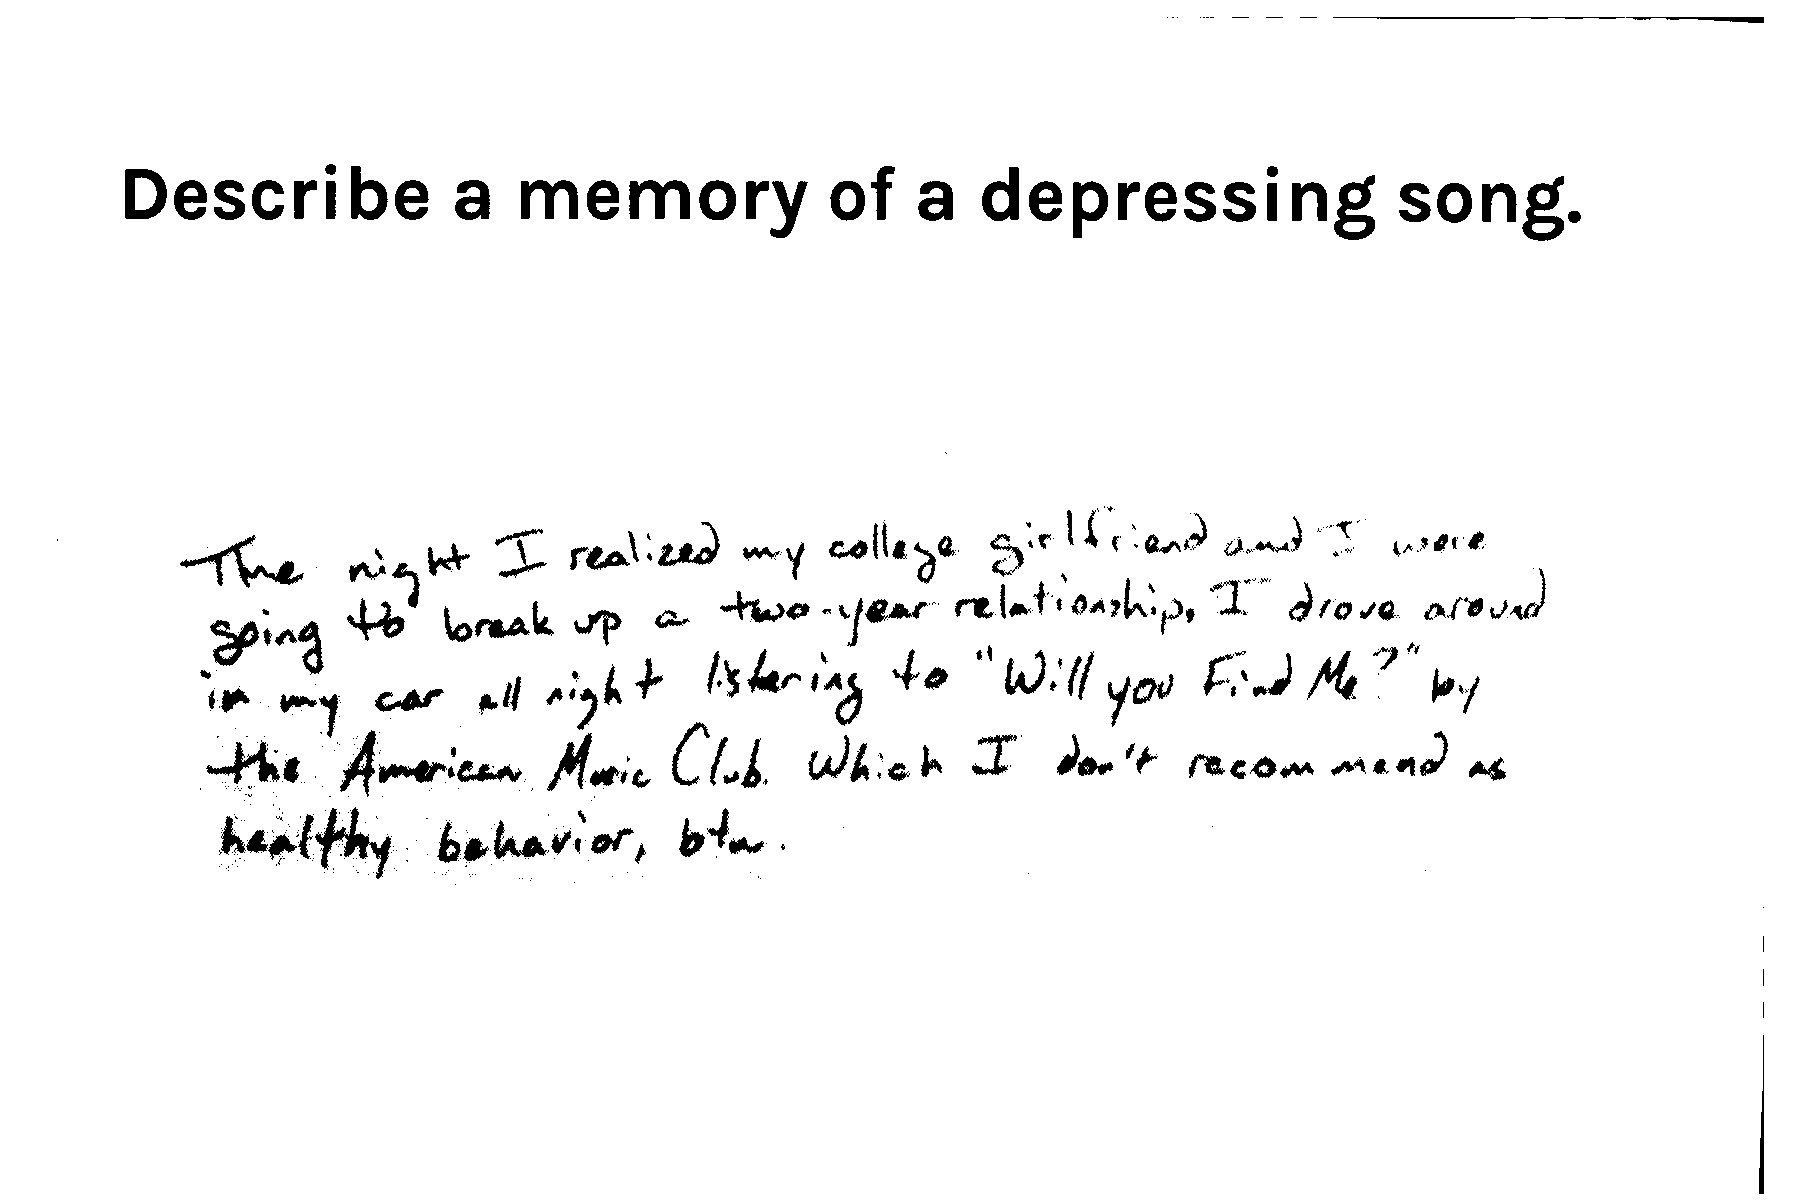 Describe a memory of a depressing song.
The night I realized my college girlfriend and I were
going to break up a two-year relationship, I drove around
in my car all night listening to "Will you Find Me?" by
the American Music Club. Which I don't recommend as
healthy behavior, btw.